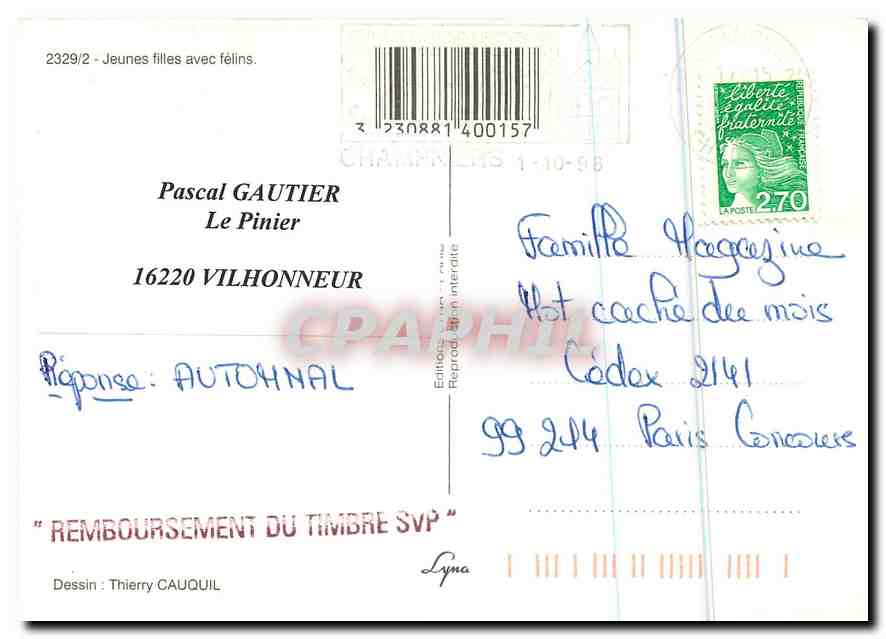 2329/2 - Jeunes filles avec félins.
3 230881 400157
CHAMPNIERS 1-10-98
liberté
égalité
fraternité
RÉPUBLIQUE FRANÇAISE
LA POSTE 2,70
Pascal GAUTIER
Le Pinier
16220 VILHONNEUR
Editions
Reproduction interdite
CPAPHIL
Famille Magazine
Mot caché du mois
Cédex 2141
99 214 Paris Concours
Réponse : AUTOMNAL
" REMBOURSEMENT DU TIMBRE SVP "
Lyna
Dessin : Thierry CAUQUIL